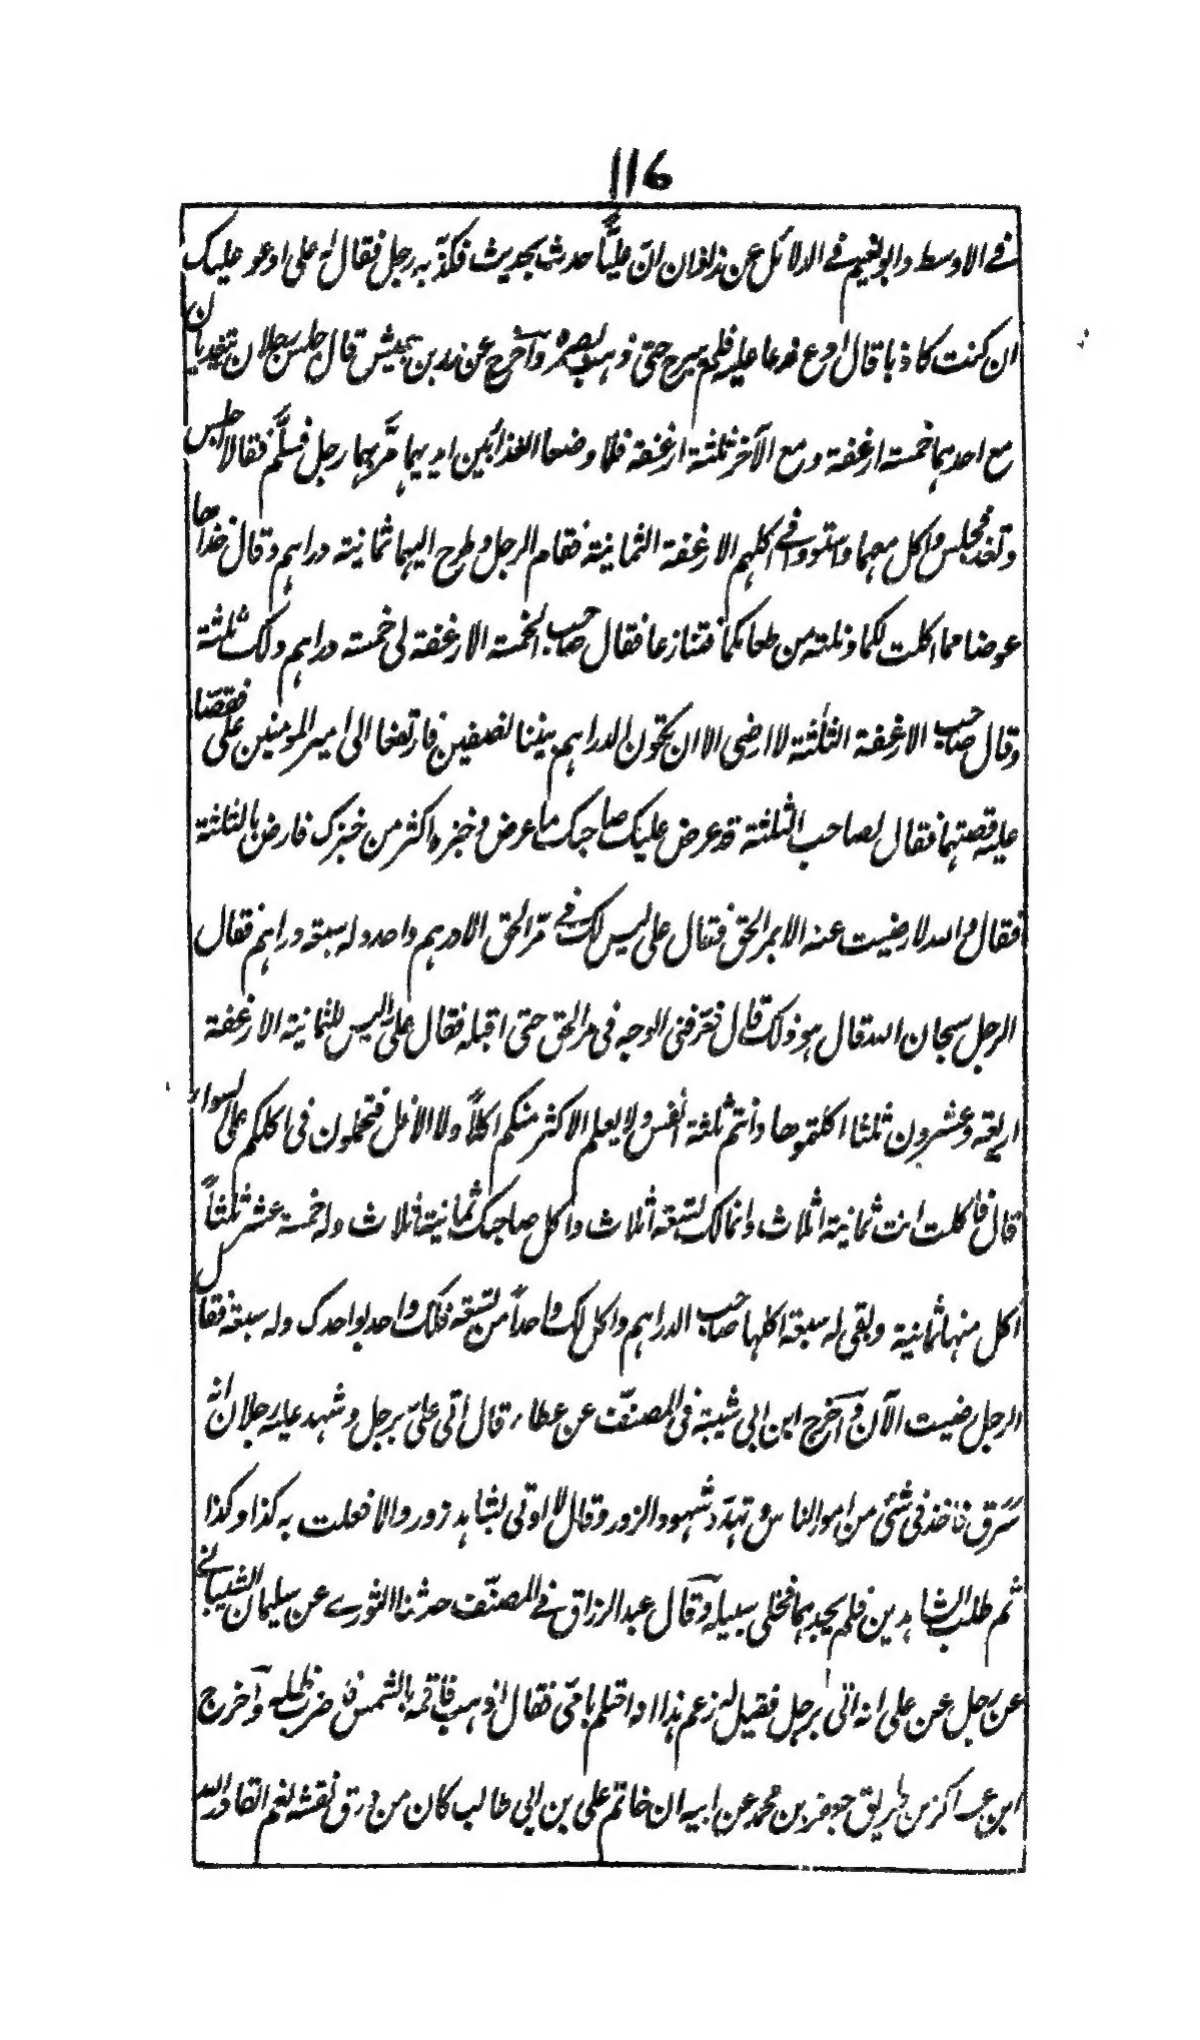 116
في الاوسط وابو نعيم في الدلائل عن زاذان ان عليًّا حدث بحديث فكذّبه رجل فقال له علی ادعو عليك
ان كنت كاذبا قال ادع فدعا عليه فلم يبرح حتی ذهب بصره وآخرج عن زر بن حبيش قال جلس رجلان يتغديان
مع احدهما خمسة ارغفة ومع الآخر ثلثة ارغفة فلما وضعا الغذا بين ايديهما مرّ بهما رجل فسلّم فقالا اجلس
وتغد فجلس واكل معهما واستووا في اكلهم الارغفة الثمانية فقام الرجل وطرح اليهما ثمانية دراهم وقال خذاها
عوضا مما اكلت لكما ونلته من طعامكما فتنازعا فقال صاحب الخمسة الارغفة لی خمسة دراهم ولك ثلثة
وقال صاحب الارغفة الثلثة لا ارضی الا ان تكون الدراهم بيننا نصفين فارتفعا الی امير المومنين علی فقصّا
عليه قصتهما فقال لصاحب الثلثة قد عرض عليك صاحبك ما عرض وخبزه اكثر من خبزك فارض بالثلثة
فقال والله لا رضيت عنه الا بمر الحق فقال علی ليس لك في مرّ الحق الا درهم واحد وله سبعة دراهم فقال
الرجل سبحان الله قال هو ذلك قال فعرّفنی الوجه فی مر الحق حتی اقبله فقال علیّ اليس للثمانية الارغفة
اربعة وعشرون ثلثا اكلتموها وانتم ثلثة انفس ولا يعلم الاكثر منكم اكلاً ولا الاقل فتحملون فی اكلكم علی السواء
قال فاكلت انت ثمانية اثلاث وانما لك تسعة اثلاث واكل صاحبك ثمانية اثلاث وله خمسة عشر ثلثاً
اكل منها ثمانية وبقی له سبعة اكلها صاحب الدراهم واكل لك واحداً من تسعة فلك واحد بواحدك وله سبعة فقال
الرجل رضيت الآن وآخرج ابن ابی شيبة فی المصنّف عن عطاء قال اتی علیّ برجل وشهد عليه رجلان انه
سَرَق فاخذ فی شئی من امور الناس وتهدّد شهود الزور وقال لا اوتی بشاهد زور والا فعلت به كذا وكذا
ثم طلب الشاهدين فلم يجدهما فخلی سبيله وقال عبد الرزاق في المصنّف حدثنا الثورے عن سليمان الشيبانے
عن رجل عن علی انه اتی برجل فقيل له زعم هذا انه احتلم بامّی فقال اذهب فاقمه بالشمس فاضرب ظله وآخرج
ابن عساكر من طريق جعفر بن محمد عن ابيه ان خاتم علی بن ابی طالب كان من ورق نقشه نعم القادر الله